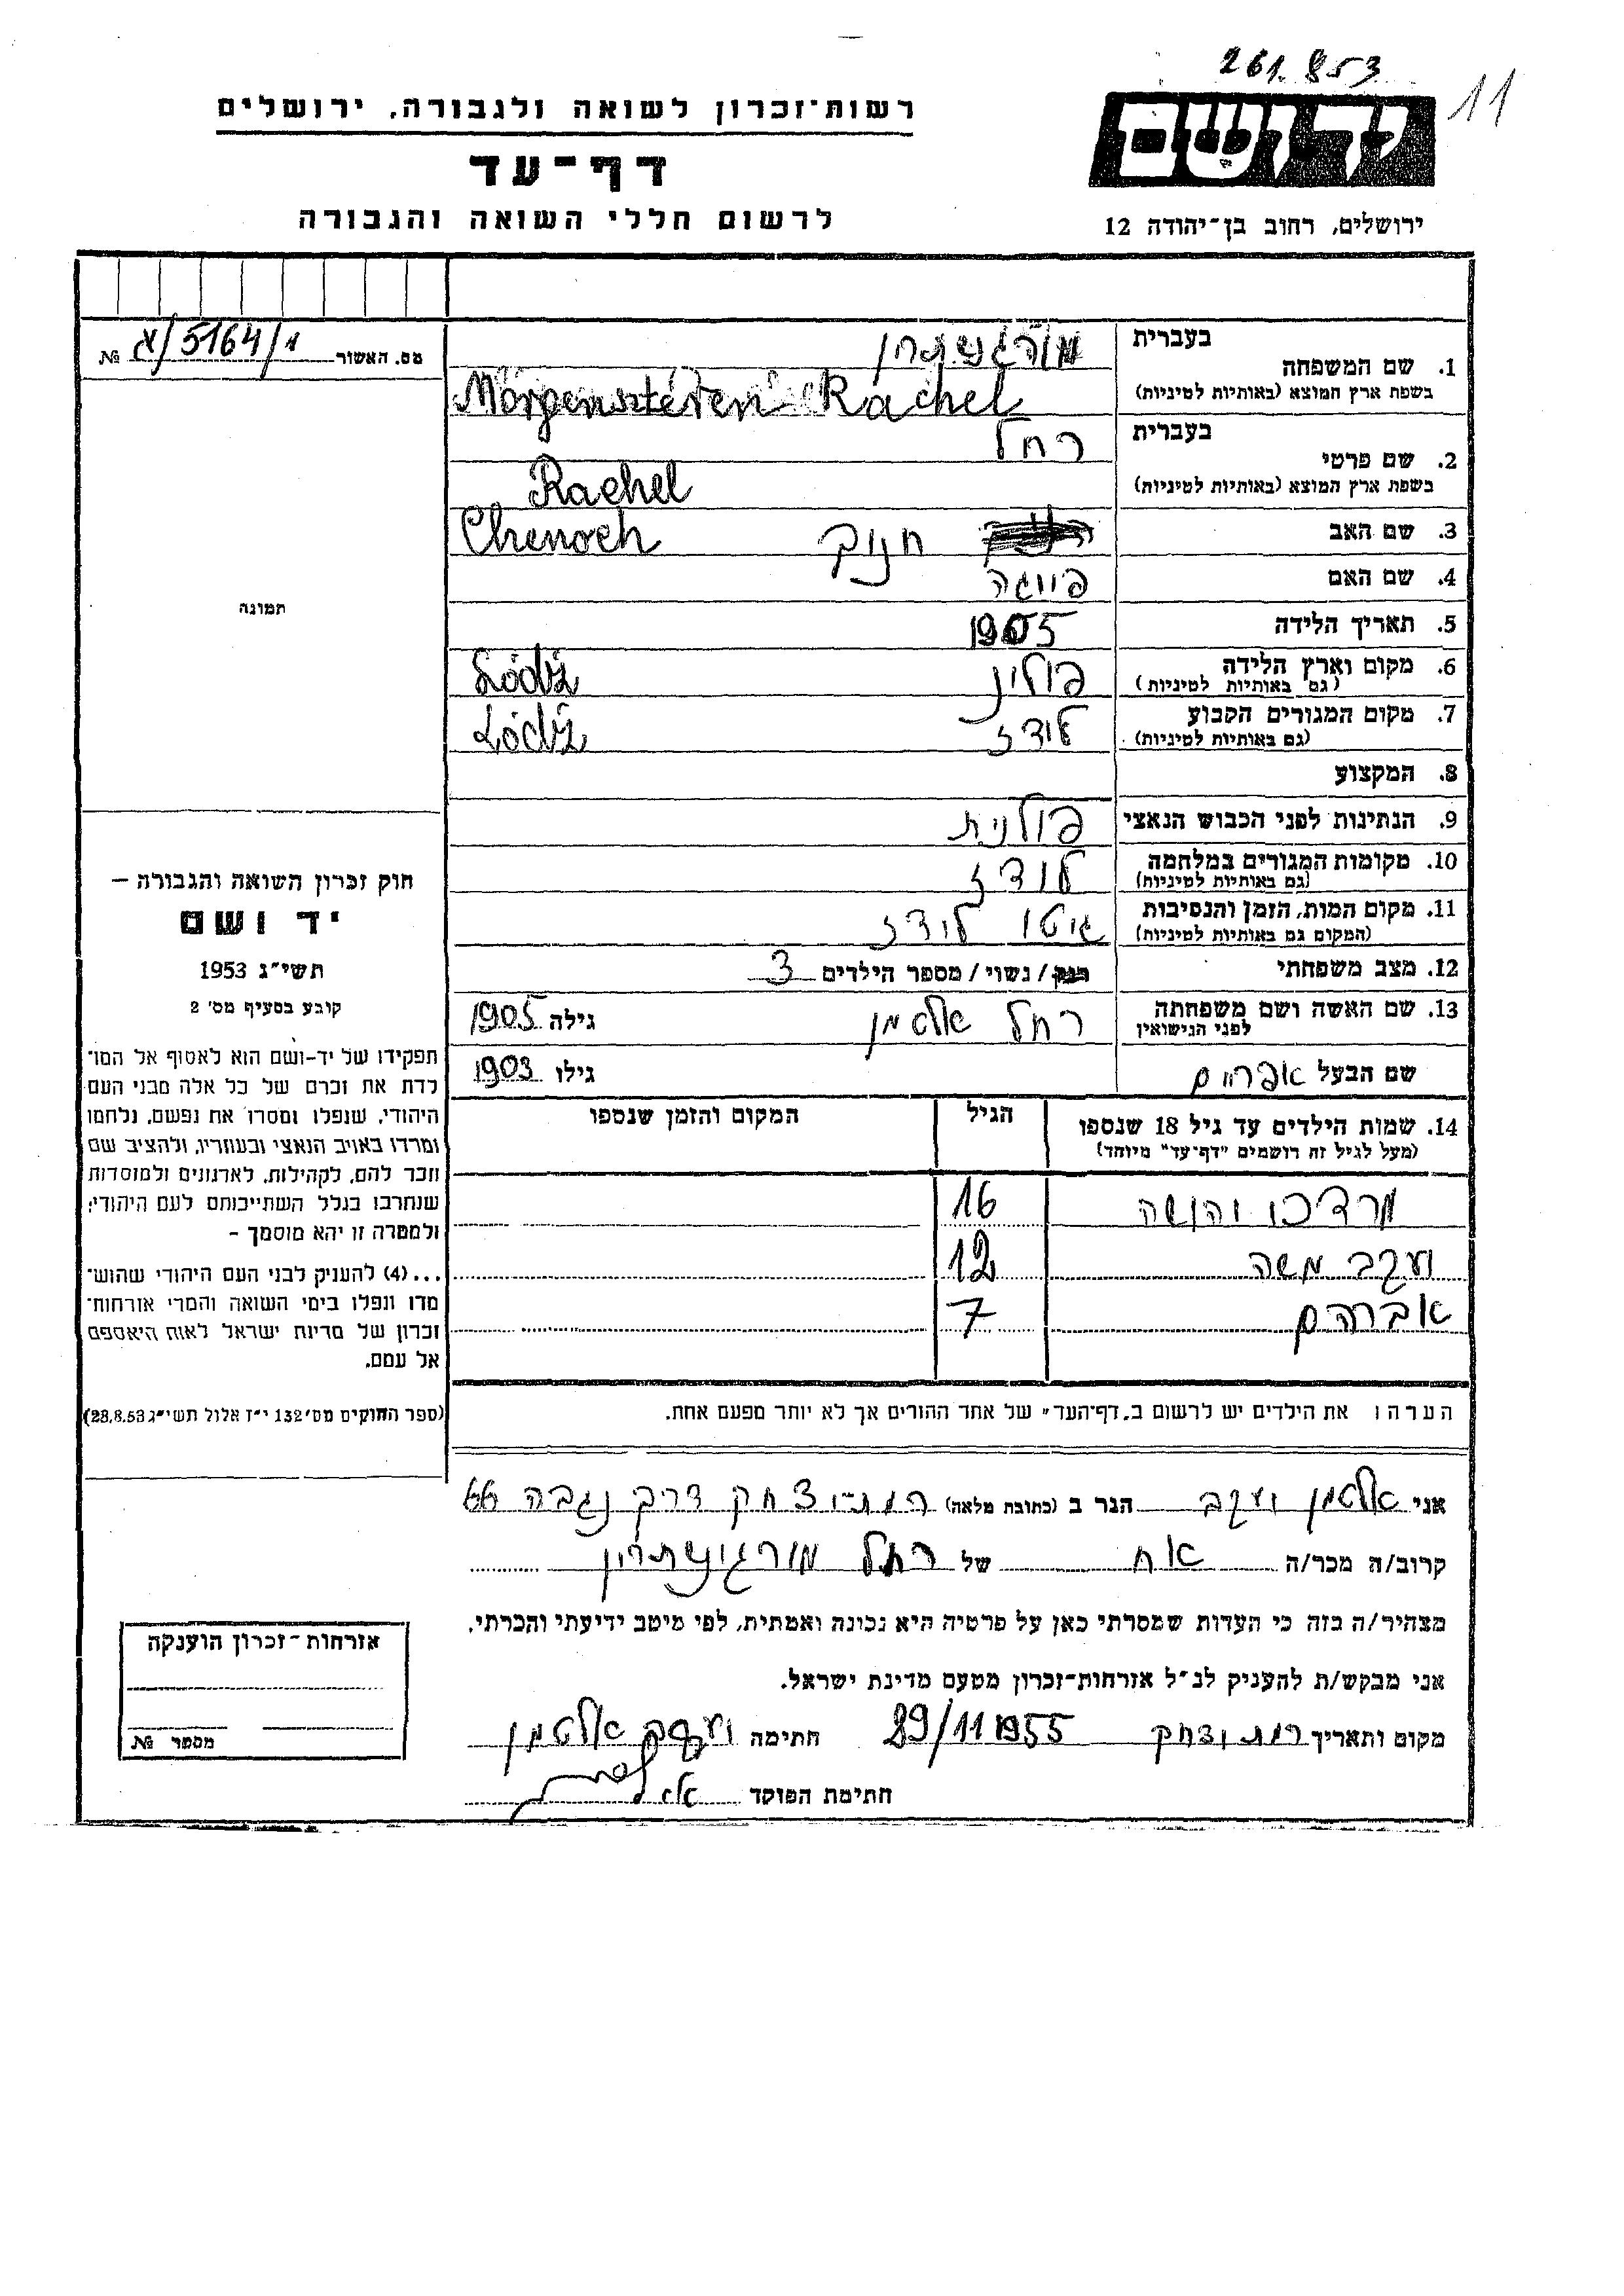 261.853
11
רשות־זכרון לשואה ולגבורה, ירושלים
דף־עד
לרשום חללי השואה והגבורה
יד ושם
ירושלים, רחוב בן־יהודה 12
מס. האשור א/5164/1 №
בעברית
1. שם המשפחה
בשפת ארץ המוצא (באותיות לטיניות)
מורגנשתרן
Morgenszteren Rachel
בעברית
2. שם פרטי
בשפת ארץ המוצא (באותיות לטיניות)
רחל
Rachel
3. שם האב חנוך Chenoch
4. שם האם פייגה
5. תאריך הלידה 1905
6. מקום וארץ הלידה פולין Łódź
(גם באותיות לטיניות)
7. מקום המגורים הקבוע לודז Łódź
(גם באותיות לטיניות)
8. המקצוע
9. הנתינות לפני הכבוש הנאצי פולנית
10. מקומות המגורים במלחמה לודז
(גם באותיות לטיניות)
11. מקום המות, הזמן והנסיבות גיטו לודז
(המקום גם באותיות לטיניות)
12. מצב משפחתי רוק/נשוי/מספר הילדים 3
13. שם האשה ושם משפחתה רחל אלטמן גילה 1905
לפני הנישואין
שם הבעל אפרים גילו 1903
14. שמות הילדים עד גיל 18 שנספו הגיל המקום והזמן שנספו
(מעל לגיל זה רושמים "דף־עד" מיוחד)
מרדכי 16
יעקב משה 12
אברהם 7
הערה: את הילדים יש לרשום ב„דף־העד" של אחד ההורים אך לא יותר מפעם אחת.
תמונה
חוק זכרון השואה והגבורה –
יד ושם
תשי"ג 1953
קובע בסעיף מס' 2
תפקידו של יד-ושם הוא לאסוף אל המו־
לדת את זכרם של כל אלה מבני העם
היהודי, שנפלו ומסרו את נפשם, נלחמו
ומרדו באויב הנאצי ובעוזריו, ולהציב שם
וזכר להם, לקהילות, לארגונים ולמוסדות
שנחרבו בגלל השתייכותם לעם היהודי;
ולמטרה זו יהא מוסמך –
... (4) להעניק לבני העם היהודי שהוש־
מדו ונפלו בימי השואה והמרי אזרחות־
זכרון של מדינת ישראל לאות היאספם
אל עמם.
(ספר החוקים מס' 132 י"ז אלול תשי"ג 28.8.53)
אני אלטמן יעקב הגר ב (כתובת מלאה) רמת־יצחק דרך נגבה 66
קרוב/ה מכר/ה אח של רחל מורגינשתרין
מצהיר/ה בזה כי העדות שמסרתי כאן על פרטיה היא נכונה ואמתית, לפי מיטב ידיעתי והכרתי.
אני מבקש/ת להעניק לנ"ל אזרחות-זכרון מטעם מדינת ישראל.
מקום ותאריך רמת יצחק 29/11 1955 חתימה יעקב אלטמן
חתימת הפוקד
אזרחות־זכרון הוענקה
מספר №